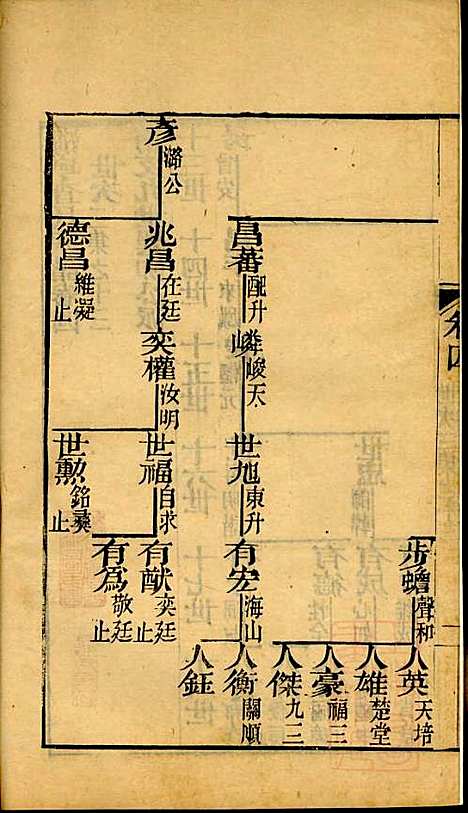 卷四
步蟾 聲和
人英 天培
人雄 楚堂
人豪 福三
人傑 九三
昌蕃 配升
嶙 峻天
世旭 東升
有宏 海山
人衡 關順
人鈺
彥 潞公
兆昌 在廷
奕權 汝明
世福 自求
有猷 奕廷 止
有為 敬廷 止
德昌 維凝 止
世勲 銘彝 止